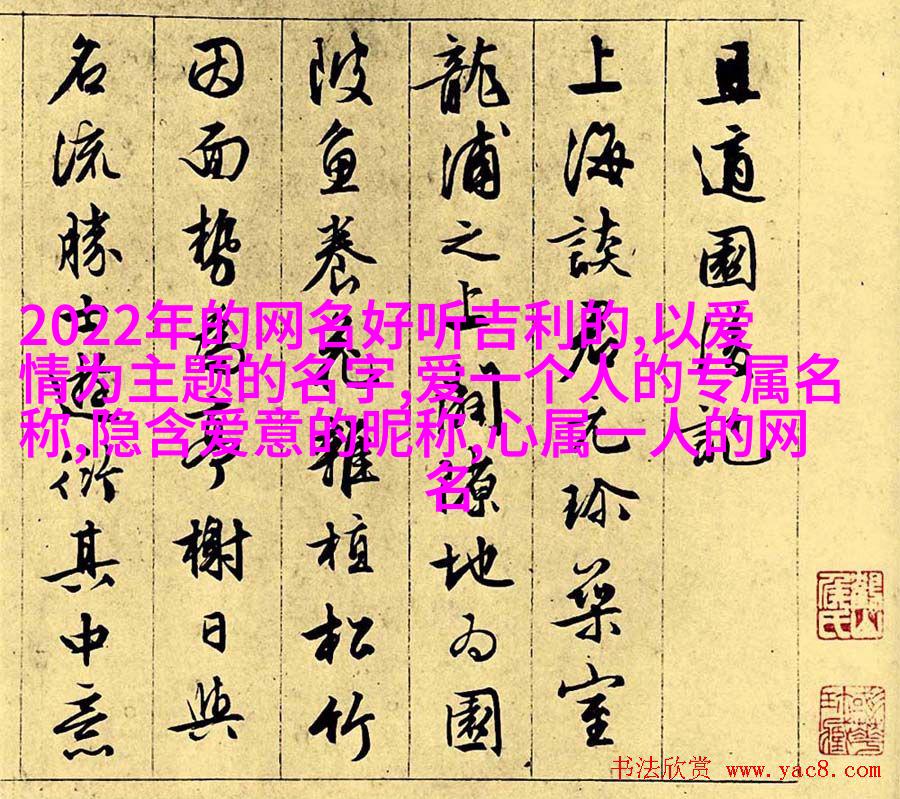 且適園後記
上海談君元珍築室
龍浦之上開隙地為園
陂魚養花雜植松竹
因面勢為亭榭日與
名流勝士遊衍其中意
2022年的网名好听吉利的,以爱
情为主题的名字,爱一个人的专属名
称,隐含爱意的昵称,心属一人的网
名
书法欣赏 www.yac8.com